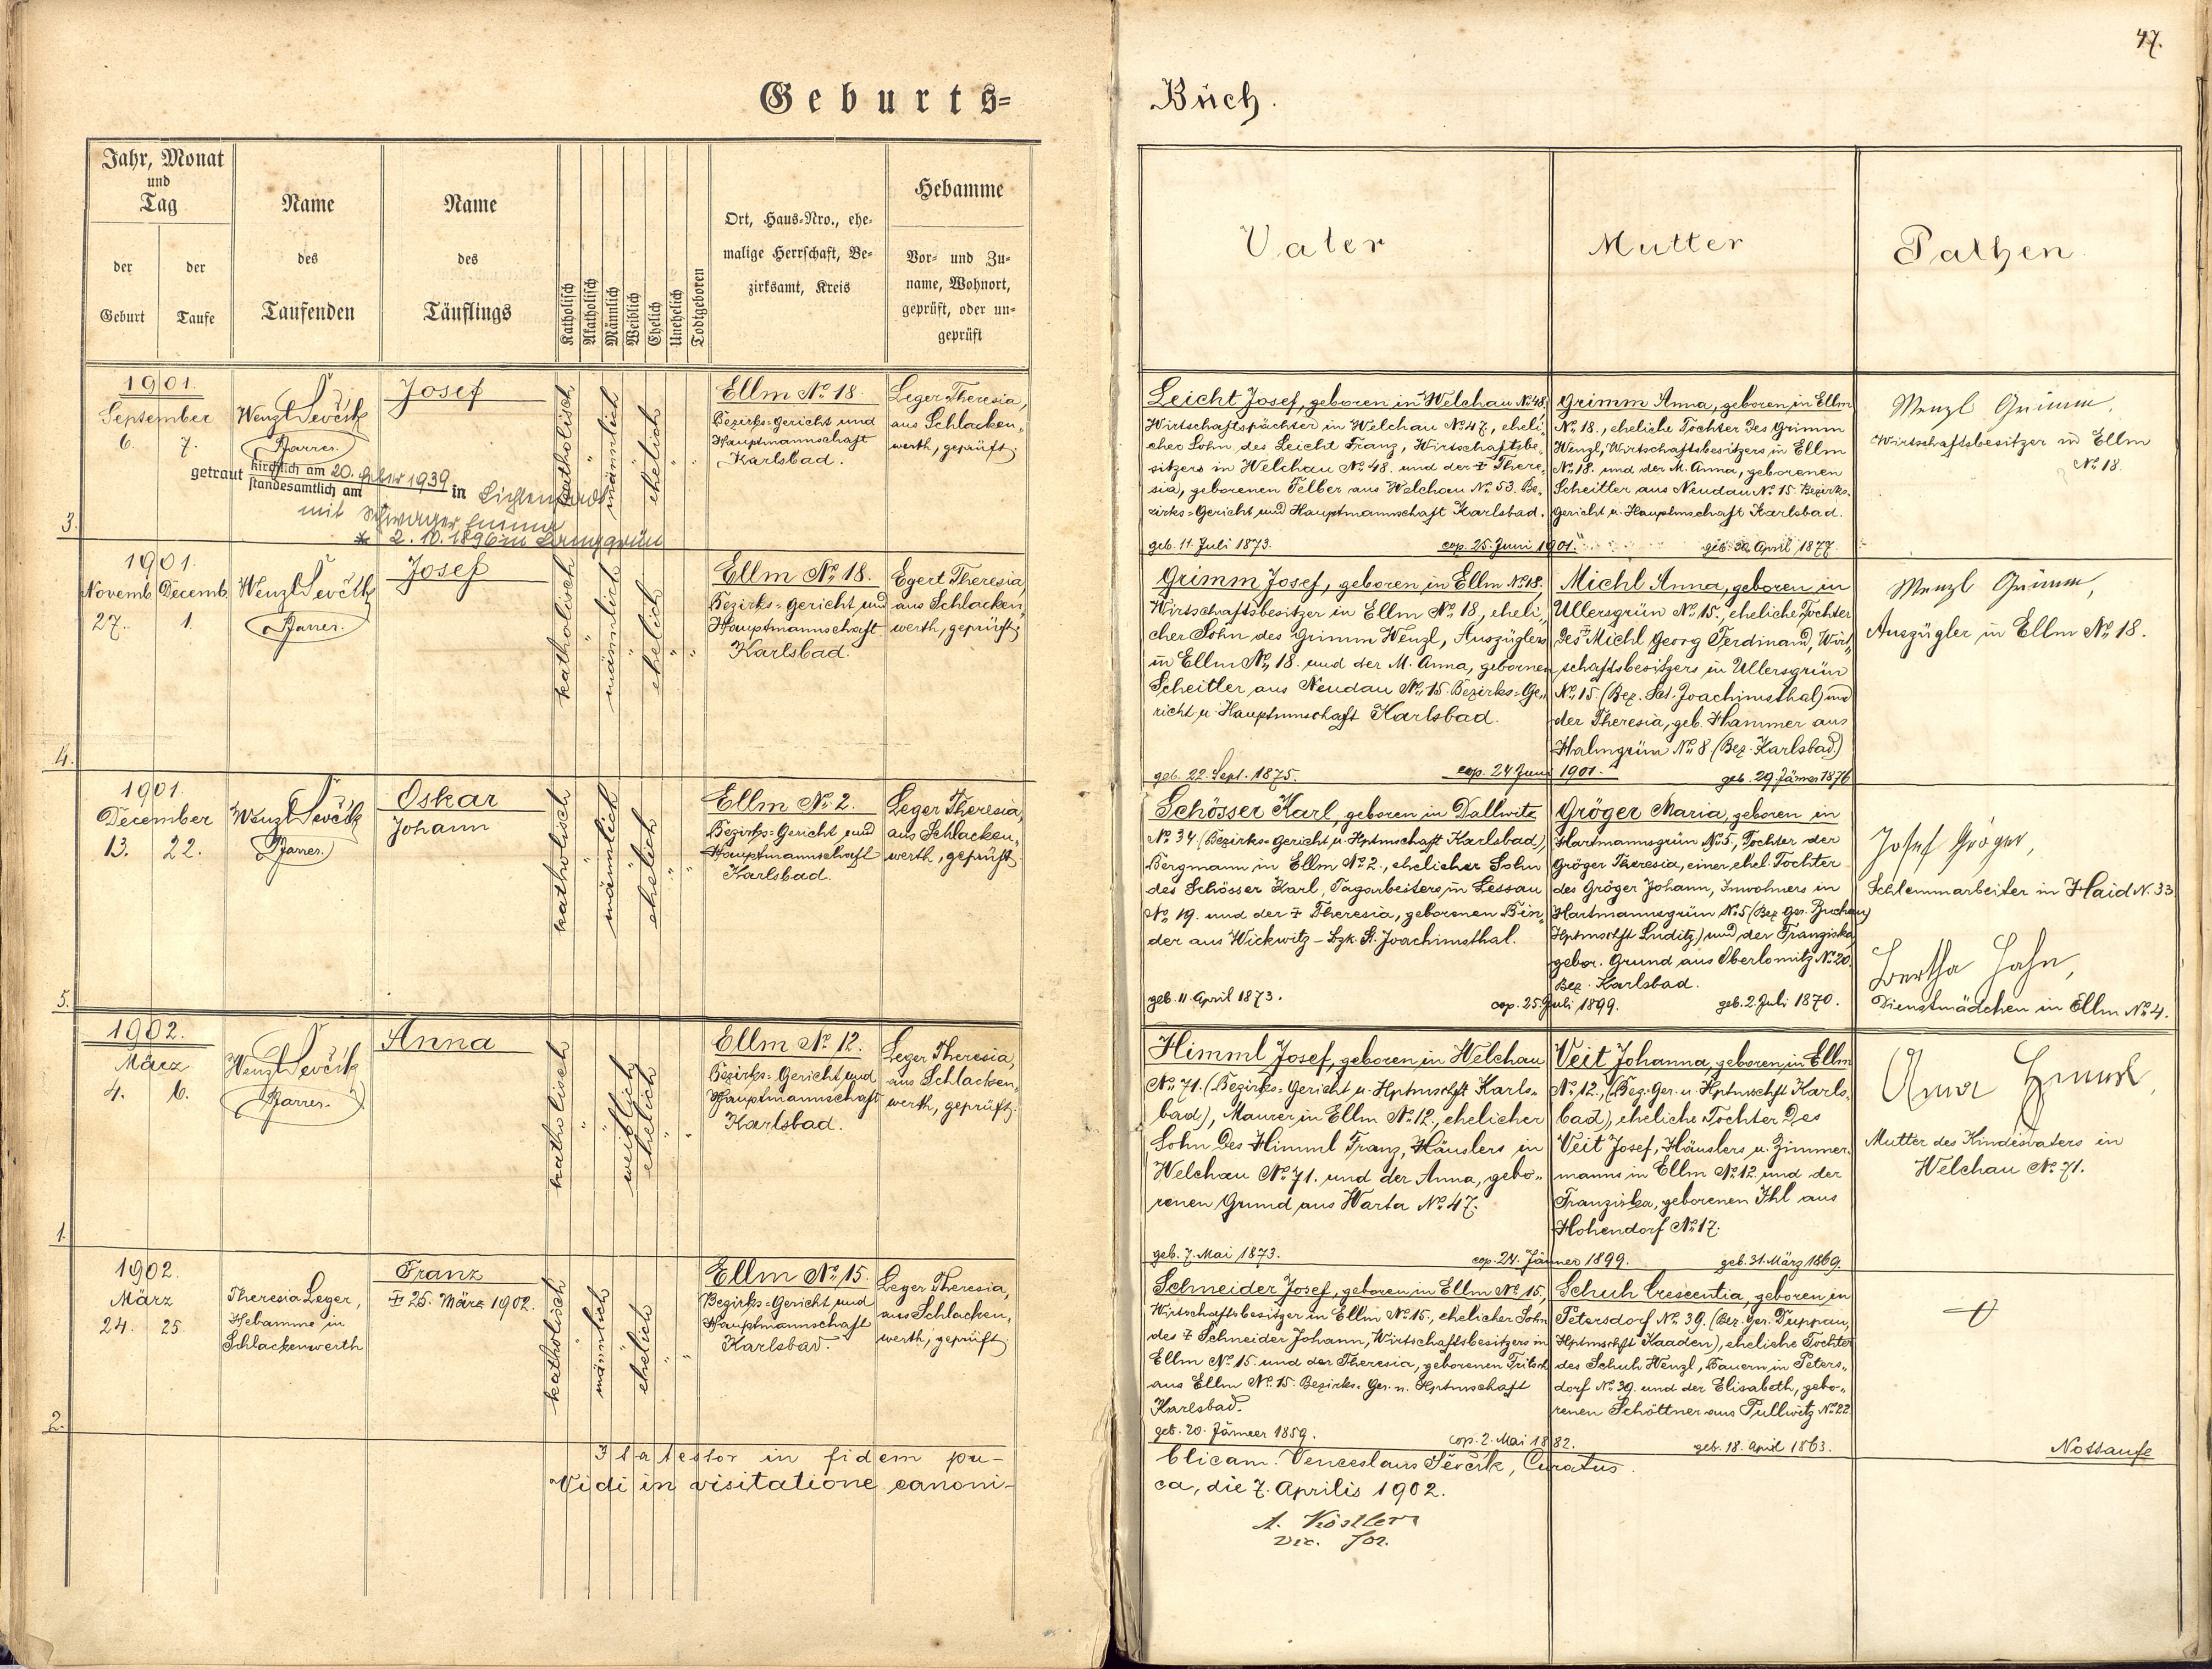 47.
Geburts=
Buch.
Jahr, Monat
und
Tag
der
Geburt
der
Taufe
Name
des
Taufenden
Name
des
Täuflings
Katholisch
Akatholisch
Männlich
Weiblich
Ehelich
Unehelich
Todtgeboren
Ort, Haus=Nro., ehe=
malige Herrschaft, Be=
zirksamt, Kreis
Hebamme
Vor= und Zu=
name, Wohnort,
geprüft, oder un=
geprüft
Vater
Mutter
Pathen
3.
1901.
September
6. 7.
Wenzl Ševčík
Pfarrer.
Josef
getraut kirchlich am 20. 1939
standesamtlich am
in Lichtenstadt
mit Schwager Emma
* 2. 10. 1896 in
katholisch
männlich
ehelich
Ellm No. 18.
Bezirks=Gericht und
Hauptmannschaft
Karlsbad.
Leger Theresia,
aus Schlacken„
werth, geprüft.
Leicht Josef, geboren in Welchau No. 48,
Wirtschaftspächter in Welchau No. 47, eheli„
cher Sohn des Leicht Franz, Wirtschaftsbe„
sitzers in Welchau No. 48. und der ‡ There„
sia, geborenen Felber aus Welchau No. 53. Be„
zirks=Gericht und Hauptmannschaft Karlsbad.
geb. 11. Juli 1873.
cop. 25. Juni 1901.
Grimm Anna, geboren in Ellm
No. 18., eheliche Tochter des Grimm
Wenzl, Wirtschaftsbesitzers in Ellm
No. 18. und der M. Anna, geborenen
Scheitler aus Neudau No. 15. Bezirks„
gericht u. Hauptmschaft Karlsbad.
geb. 30. April 1877.
Wenzl Grimm,
Wirtschaftsbesitzer in Ellm
No. 18.
4.
1901.
Novemb. Decemb.
27. 1.
Wenzl Ševčík
Pfarrer.
Josef
katholisch
männlich
ehelich
Ellm No. 18.
Bezirks=Gericht und
Hauptmannschaft
Karlsbad.
Egert Theresia,
aus Schlacken„
werth, geprüft.
Grimm Josef, geboren in Ellm No. 18,
Wirtschaftsbesitzer in Ellm No. 18, eheli„
cher Sohn des Grimm Wenzl, Auszüglers
in Ellm No. 18. und der M. Anna, gebornen
Scheitler aus Neudau No. 15. Bezirks=Ge„
richt u. Hauptmschaft Karlsbad.
geb. 22. Sept. 1875.
cop. 24 Juni 1901.
Michl Anna, geboren in
Ullersgrün No. 15., eheliche Tochter
des Michl Georg Ferdinand, Wirt„
schaftsbesitzers in Ullersgrün
No. 15. (Bez. Sct. Joachimsthal) und
der Theresia, geb. Hammer aus
Halmgrün No. 8 (Bez. Karlsbad.)
geb. 29. Jänner 1876
Wenzl Grimm,
Auszügler in Ellm No. 18.
5.
1901.
December
13. 22.
Wenzl Ševčík
Pfarrer.
Oskar
Johann
katholisch
männlich
ehelich
Ellm No. 2.
Bezirks=Gericht und
Hauptmannschaft
Karlsbad.
Leger Theresia,
aus Schlacken„
werth, geprüft.
Schösser Karl, geboren in Dallwitz
No. 34 (Bezirks=Gericht u. Hptmschaft Karlsbad),
Bergmann in Ellm No. 2., ehelicher Sohn
des Schösser Karl, Tagarbeiters in Lessau
No. 19. und der ‡ Theresia, geborenen Bin„
der aus Wickwitz – Bzk. St. Joachimsthal.
geb. 11 April 1873.
cop. 25. Juli 1899.
Gröger Maria, geboren in
Hartmannsgrün No. 5, Tochter der
Gröger Theresia, einer ehel. Tochter
des Gröger Johann, Inwohners in
Hartmannsgrün No. 5 (Bez. Ger. Buchau,
Hptmschft Luditz) und der Franziska
gebor. Grund aus Oberlomitz No. 20.
Bez. Karlsbad.
geb. 2. Juli 1870.
Josef Gröger,
Schlemmarbeiter in Haid N. 33
Bertha Hahn,
Dienstmädchen in Ellm No. 4.
1.
1902.
März
4. 6.
Wenzl Ševčík
Pfarrer.
Anna
katholisch
weiblich
ehelich
Ellm No. 12.
Bezirks=Gericht und
Hauptmannschaft
Karlsbad.
Leger Theresia,
aus Schlacken„
werth, geprüft.
Himml Josef, geboren in Welchau
No. 71. (Bezirks=Gericht u. Hptmschft Karls„
bad), Maurer in Ellm No. 12., ehelicher
Sohn des Himml Franz, Häuslers in
Welchau No. 71. und der Anna, gebo„
renen Grund aus Warta No. 47.
geb. 7. Mai 1873.
cop. 24. Jänner 1899.
Veit Johanna, geboren in Ellm
No. 12., (Bez. Ger. u. Hptmschft Karls„
bad), eheliche Tochter des
Veit Josef, Häuslers u. Zimmer„
manns in Ellm No. 12. und der
Franziska, geborenen Ihl aus
Hohendorf No. 17.
geb. 31. März 1869.
Anna Himml
Mutter des Kindesvaters in
Welchau No. 71.
2.
1902.
März
24. 25.
Theresia Leger,
Hebamme in
Schlackenwerth
Franz
‡ 25. März 1902.
katholisch
männlich
ehelich
Ellm No. 15.
Bezirks=Gericht und
Hauptmannschaft
Karlsbad.
Leger Theresia,
aus Schlacken„
werth, geprüft.
Schneider Josef, geboren in Ellm No. 15,
Wirtschaftsbesitzer in Ellm No. 15., ehelicher Sohn
des ‡ Schneider Johann, Wirtschaftsbesitzers in
Ellm No. 15. und der Theresia, geborenen Fritsch
aus Ellm No. 15. Bezirks. Ger. u. Hptmschaft
Karlsbad.
geb. 20. Jänner 1859.
cop. 2. Mai 1882.
Schuh Crescentia, geboren in
Petersdorf No. 39. (Bez. Ger. Duppau,
Hptmschft Kaaden), eheliche Tochter
des Schuh Wenzl, Bauern in Peters„
dorf No. 39. und der Elisabeth, gebo„
renen Schöttner aus Pullwitz No. 22.
geb. 18. April 1863.
Nottaufe
Ita testor in fidem pu–
blicam. Venceslaus Ševčík, Curatus.
Vidi in visitatione canoni–
ca, die 7. Aprilis 1902.
A. Köstler
vic. for.